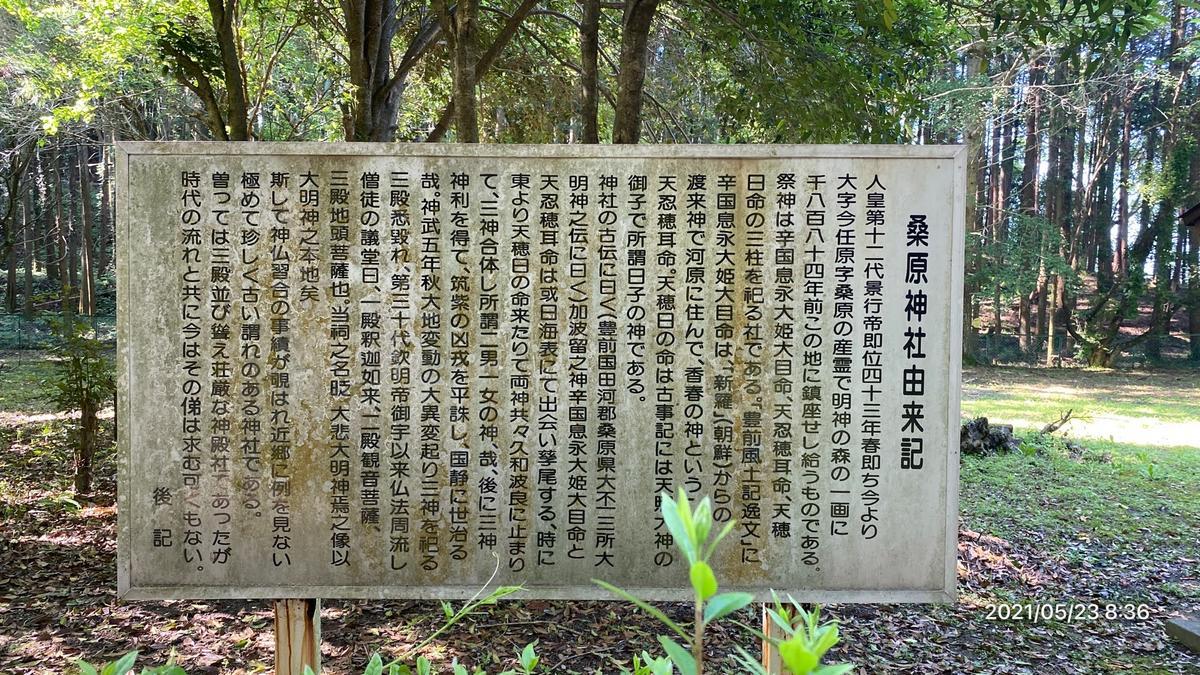 桑原神社由来記
人皇第十二代景行帝即位四十三年春即ち今より
大字今任原字桑原の産霊で明神の森の一画に
千八百八十四年前この地に鎮座せし給うものである。
祭神は辛国息永大姫大目命、天忍穂耳命、天穂
日命の三柱を祀る社である。豊前風土記逸文に
辛国息永大姫大目命は、「新羅」(朝鮮)からの
渡来神で河原に住んで、香春の神という
天忍穂耳命。天穂日の命は古事記には天照大神の
御子で所謂日子の神である。
神社の古伝に曰く豊前国田河郡桑原県大不二三所大
明神之伝に曰く加波留之神辛国息永大姫大目命と
天忍穂耳命は或日海表にて出会い孳尾する、時に
東より天穂日の命来たりて両神共々久和波良に止まり
て、三神合体し所謂二男一女の神、哉、後に三神
神利を得て、筑紫の凶戎を平誅し、国静に世治る
哉。神武五年秋大地変動の大異変起り三神を祀る
三殿悉毀れ、第三十代欽明帝御宇以来仏法周流し
僧徒の議堂日、一殿釈迦如来、二殿観音菩薩、
三殿地頭菩薩也。当祠之名貶、大悲大明神焉之像以
大明神之本地矣
斯して神仏習合の事績が覗はれ近郷に例を見ない
極めて珍しく古い謂れのある神社である。
曽っては三殿並び聳え荘厳な神殿社であったが
時代の流れと共に今はその俤は求む可くもない。
後記
2021/05/23 8:36